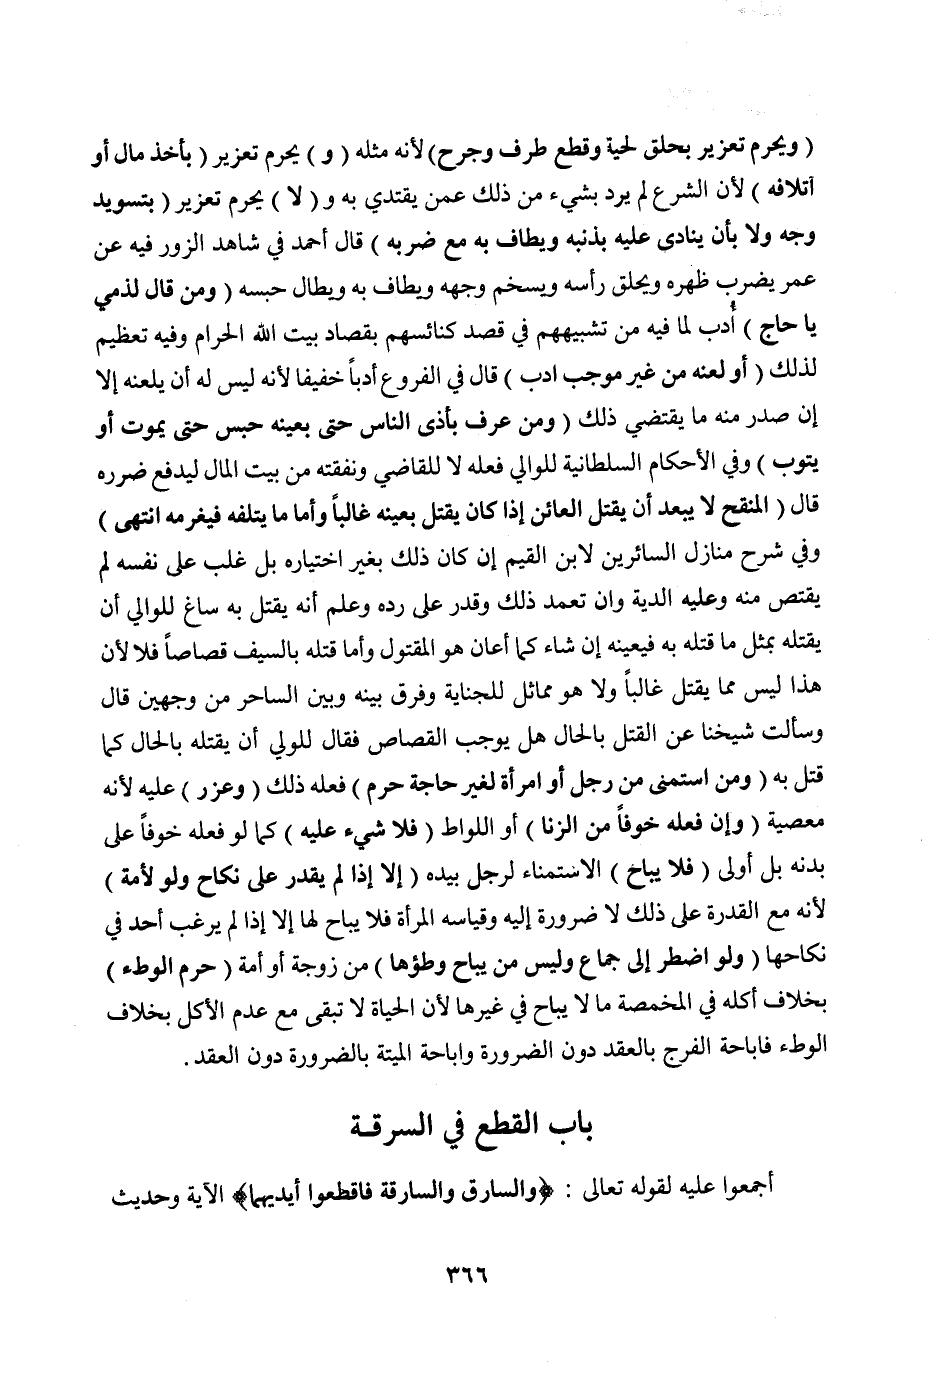 ( ويحرم تعزير بحلق لحية وقطع طرف وجرح) لأنه مثله ( و ) يحرم تعزير ( بأخذ مال أو
آتلافه ) لأن الشرع لم يرد بشيء من ذلك عمن يقتدي به و ( لا ) يحرم تعزير ( بتسويد
وجه ولا بأن ينادى عليه بذنبه ويطاف به مع ضربه ) قال أحمد في شاهد الزور فيه عن
عمر يضرب ظهره ويحلق رأسه ويسخم وجهه ويطاف به ويطال حبسه ( ومن قال لذمي
يا حاج ) أُدب لما فيه من تشبيههم في قصد كنائسهم بقصاد بيت الله الحرام وفيه تعظيم
لذلك ( أو لعنه من غير موجب ادب ) قال في الفروع أدباً خفيفا لأنه ليس له أن يلعنه إلا
إن صدر منه ما يقتضي ذلك ( ومن عرف بأذى الناس حتى بعينه حبس حتى يموت أو
يتوب ) وفي الأحكام السلطانية للوالي فعله لا للقاضي ونفقته من بيت المال ليدفع ضرره
قال ( المنقح لا يبعد أن يقتل العائن إذا كان يقتل بعينه غالباً وأما ما يتلفه فيغرمه انتهى )
وفي شرح منازل السائرين لابن القيم إن كان ذلك بغير اختياره بل غلب على نفسه لم
يقتص منه وعليه الدية وان تعمد ذلك وقدر على رده وعلم أنه يقتل به ساغ للوالي أن
يقتله بمثل ما قتله به فيعينه إن شاء كما أعان هو المقتول وأما قتله بالسيف قصاصاً فلا لأن
هذا ليس مما يقتل غالباً ولا هو مماثل للجناية وفرق بينه وبين الساحر من وجهين قال
وسألت شيخنا عن القتل بالحال هل يوجب القصاص فقال للولي أن يقتله بالحال كما
قتل به ( ومن استمنى من رجل أو امرأة لغير حاجة حرم ) فعله ذلك ( وعزر ) عليه لأنه
معصية ( وإن فعله خوفاً من الزنا ) أو اللواط ( فلا شيء عليه ) كما لو فعله خوفاً على
بدنه بل أولى ( فلا يباخ ) الاستمناء لرجل بيده ( إلا إذا لم يقدر على نكاح ولو لأمة )
لأنه مع القدرة على ذلك لا ضرورة إليه وقياسه المرأة فلا يباح لها إلا إذا لم يرغب أحد في
نكاحها ( ولو اضطر إلى جماع وليس من يباح وطؤها ) من زوجة أو أمة ( حرم الوطء )
بخلاف أكله في المخمصة ما لا يباح في غيرها لأن الحياة لا تبقى مع عدم الأكل بخلاف
الوطء فاباحة الفرج بالعقد دون الضرورة واباحة الميتة بالضرورة دون العقد .
باب القطع في السرقة
أجمعوا عليه لقوله تعالى : ﴿والسارق والسارقة فاقطعوا أيديهما﴾ الآية وحديث
٣٦٦